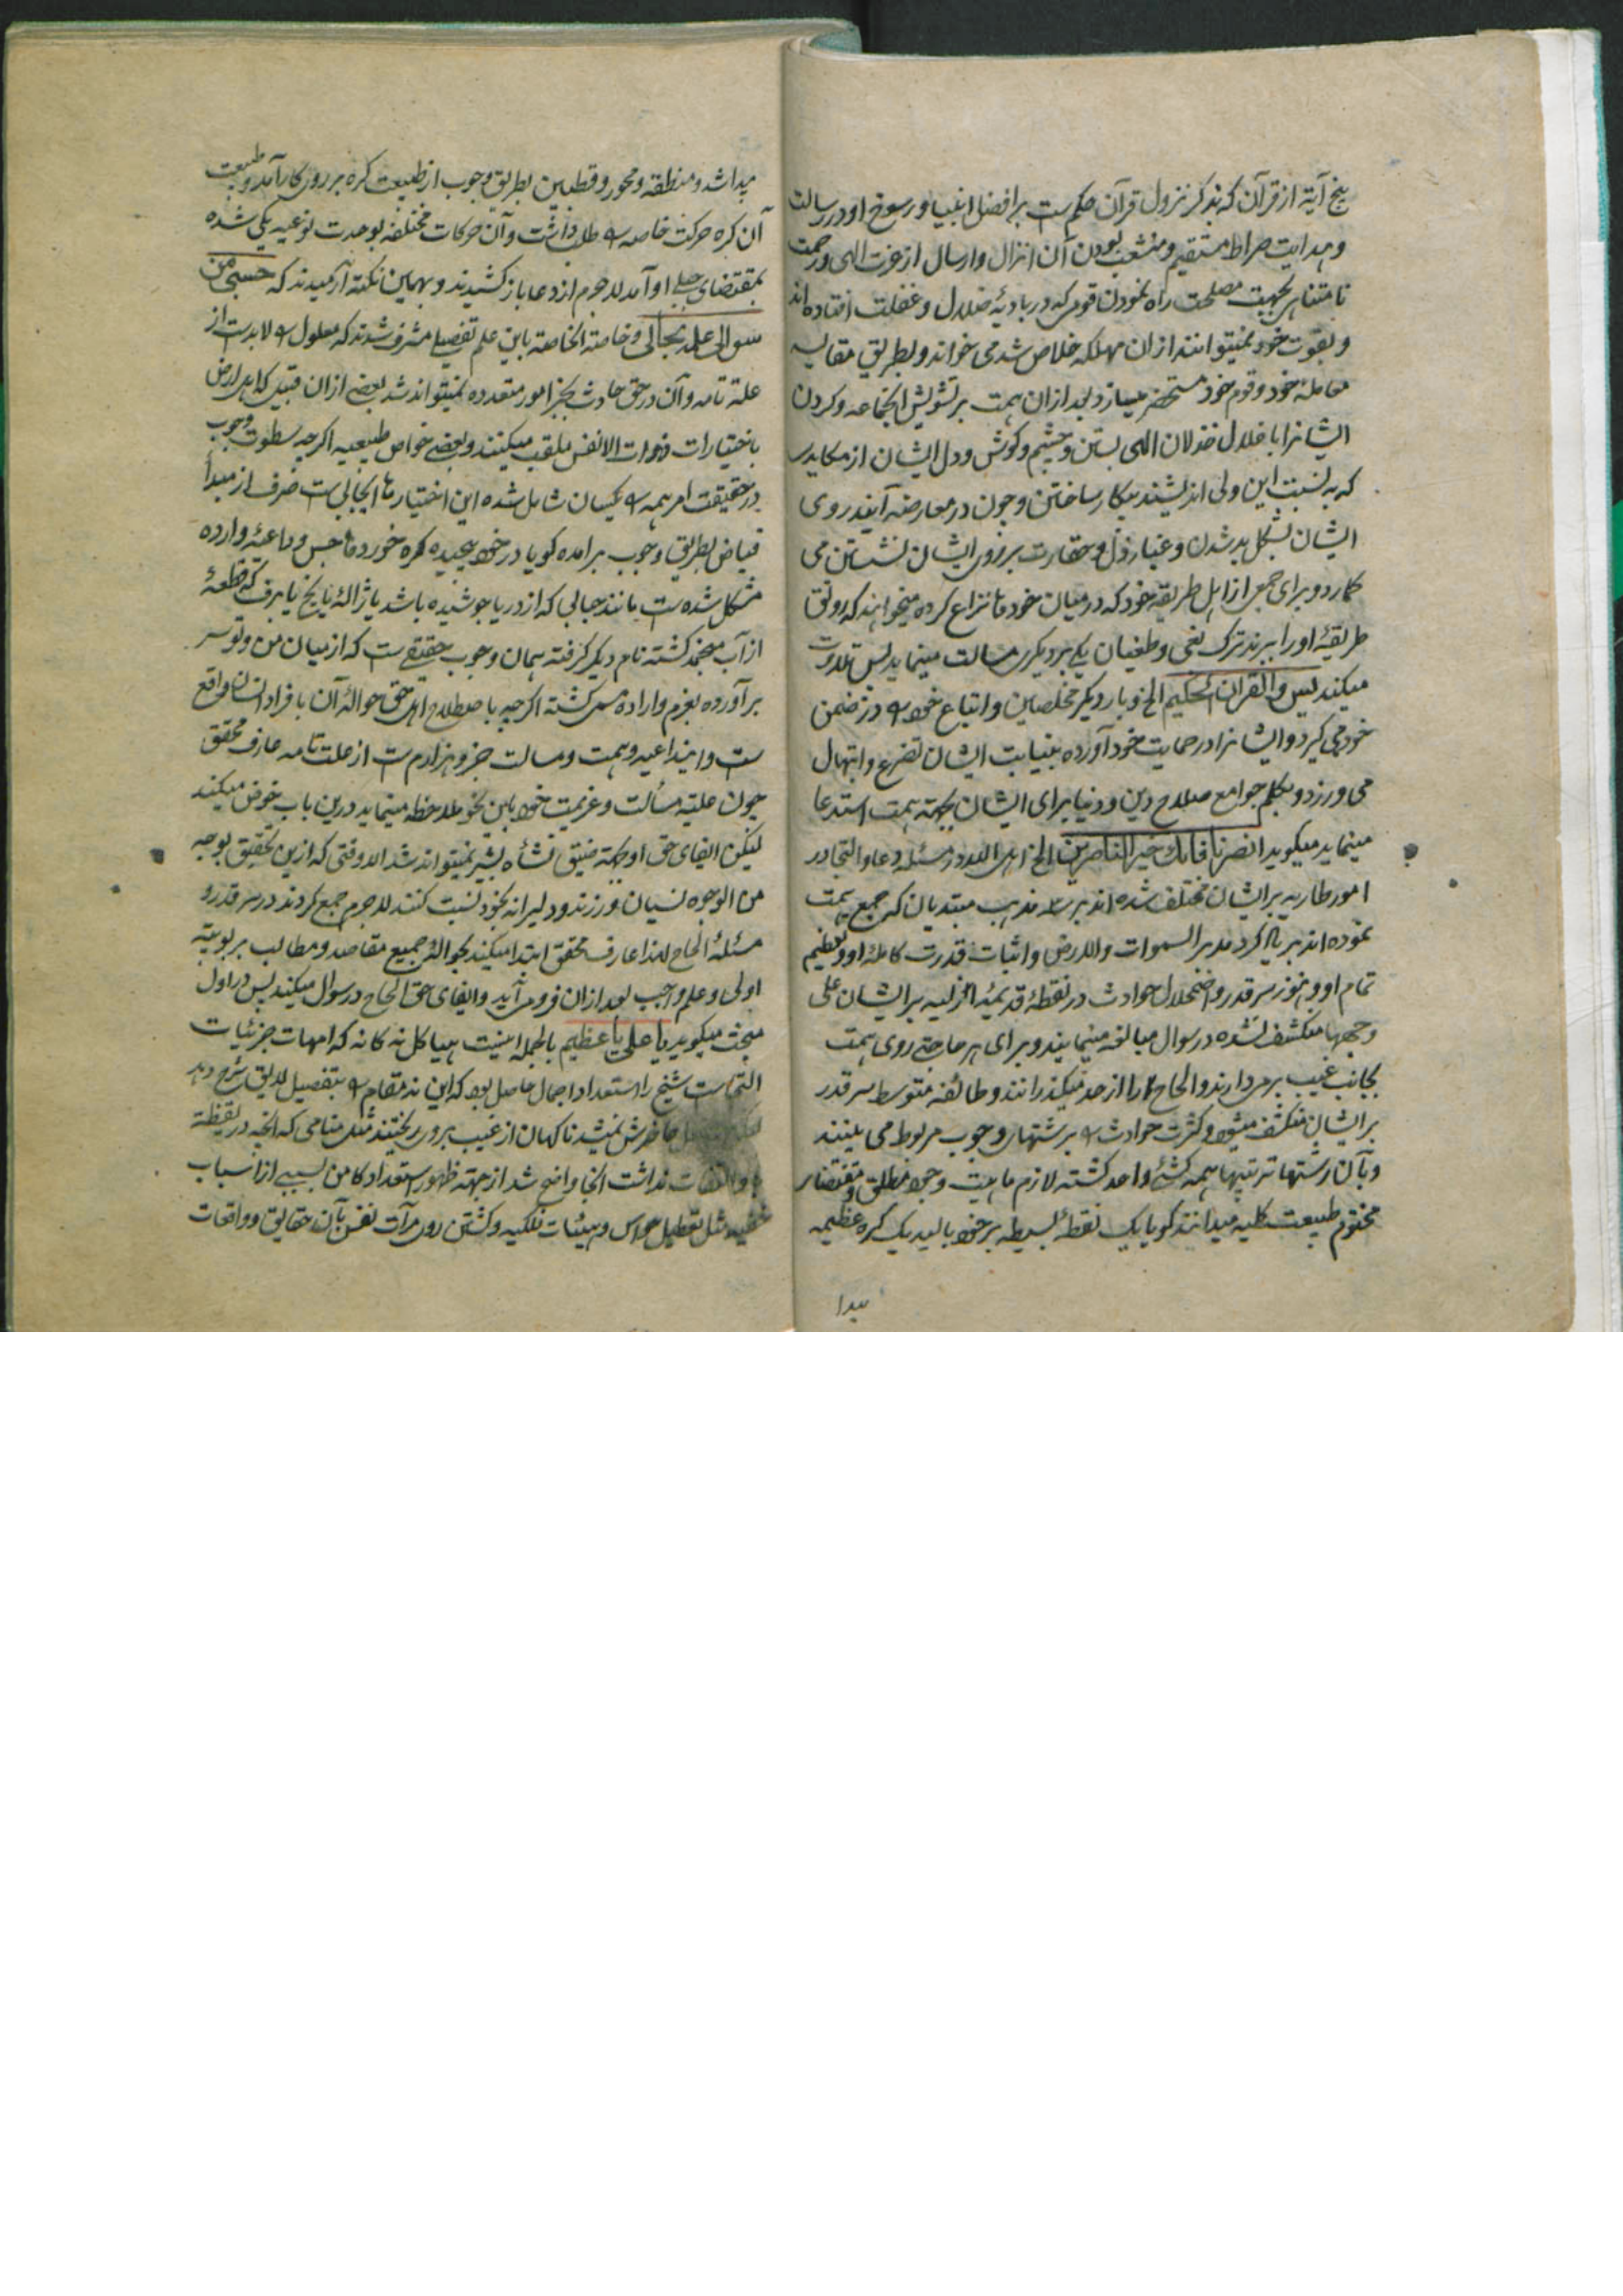 پنج آیة از قرآن که بذکر نزول قرآن حکیم ست بر افضل انبیا و رسوخ او در رسالت
و هدایت صراط مستقیم و منشعب بودن آن انزال و ارسال از عزت الهی و رحمت
نامتناهی بجهت مصلحت راه نمودن قومی که در بادیهٔ ضلال و غفلت افتاده اند
و بقوت خود نمیتوانند ازان مهلکه خلاص شد می خواند و بطریق مقایسه
معاملهٔ خود و قوم خود مستحضر میسازد بعد ازان همت بر تشویش اجتماعه و کردن
ایشانرا باخلال خذلان الهی بستن و چشم و گوش و دل ایشان از مکاید
که به نسبت این ولی اندیشند بیکار ساختن و چون در معارضه آیند روی
ایشان بشکل بد شدن و غبار ذل و حقارت بر روی ایشان نشستن می
کمارد و برای جمعی از اهل طریقه خود که در میان خود ها نزاع کرده میخواهند که رونق
طریقهٔ او را ببرند ترک بغی و طغیان یکی بر دیگری مسالت مینماید پس تلاوت
میکند یس والقرآن الحکیم الخ و بار دیگر مخلصان و اتباع خود را در ضمن
خود می گیرد و ایشانرا در حمایت خود آورده بنیابت ایشان تضرع و ابتهال
می ورزد و بکلم جوامع صلاح دین و دنیا برای ایشان بجهة همت استدعا
مینماید میگوید انصرنا فانک خیر الناصرین الخ اهل الله در مسئله دعا و التجا در
امور طاریه بر ایشان مختلف شده اند بر سه مذهب مبتدیان که جمع همت
نموده اند بر یاد کرد مدبر السموات والارض و اثبات قدرت کامله او و تعظیم
تمام او و هنوز سر قدر و اضمحلال حوادث در نقطهٔ قدیمهٔ ازلیه بر ایشان علی
وجهها منکشف نشده در سوال مبالغه مینمایند و برای هر حاجتی روی همت
بجانب غیب بر میدارند و الحاح را از حد میگذرانند و طائفه متوسط سر قدر
بر ایشان منکشف میشود و کثرت حوادث را برشتهای وجوب مربوط می بینند
و بآن رشتها ترتیبها همه کشی واحد گشته لازم ماهیت وجود مطلق و مقتضای
مختوم طبیعت کلیه میدانند گویا یک نقطه بسیطه بر خود بالیده یک کره عظیمه
پیدا
پیدا شد و منطقه و محور و قطبین بطریق وجوب از طبیعت کره بر روی کار آمد و طبیعت
آن کره حرکت خاصه را طلب داشت و آن حرکات مختلفه بوحدت نوعیه یکی شده
بمقتضای جبلی او آمد لاجرم از دعا باز کشیدند و بهمین نکته آرمیدند که حسبی من
سوالی علمه بحالی و خاصة الخاصه باین علم تفصیلی مشرف شدند که معلول را لابد ست از
علة تامه و آن در حق حادث بجز امور متعدده نمیتواند شد بعضی ازان قبیل که اهل ارض
باختیارات و همات الانفس ملقب میکنند و بعضی خواص طبیعیه اگر چه سطوت وجوب
در حقیقت امر همه را یکسان شامل شده این اختیار ها ایجابی ست صرف از مبدأ
فیاض بطریق وجوب برامده گویا در خود پیچیده گره خورد و تا جس و داعیهٔ وارده
مشکل شده ست مانند حبابی که از دریا جوشیده باشد یا ژالهٔ یا یخ یا برف که قطعهٔ
از آب منجمد گشته نام دیگر گرفته همان وجوب حقیقی ست که از میان من و تو سر
برآورده بعزم و اراده مسمی گشته اگر چه باصطلاح اهل حق حوالهٔ آن بافراد انسان واقع
ست و اینداعیه و همت و مسالت جزو هزارم ست از علت تامه عارف محقق
چون علیة مسألت و عزیمت خود باین نحو ملاحظه مینماید درین باب خوض میکند
لیکن ایفای حق او بجهة ضیق نشاه بشر نمیتواند شد الا وقتی که ازین تحقیق بوجه
من الوجوه نسیان ورزند و دلیرانه بخود نسبت کنند لاجرم جمع کردند در سر قدر و
مسئلهٔ الحاح لهذا عارف محقق ابتدا میکند بحوالهٔ جمیع مقاصد و مطالب بربوبیته
اولی و علم واجب بعد ازان فرو می آید و ایفای حق الحاح در سوال میکند پس در اول
مبحث میگوید یا علی یا عظیم بالجمله امنیت هیاکل نه گانه که امهات جزئیات
التجاست شیخ را استعداد اجمال حاصل بود که این نه مقام را بتفصیل لایق شرح دهد
خاطرش نمیشد ناگهان از غیب بر وی ریختند مثل منامی که آنچه در یقظة
التفات نداشت انجا واضح شد از جهة ظهور استعداد کامن بسببی از اسباب
خفیه مثل تعطیل حواس و هیئات فلکیه و گشتن روی مرآت نفس بآن حقایق و واقعات